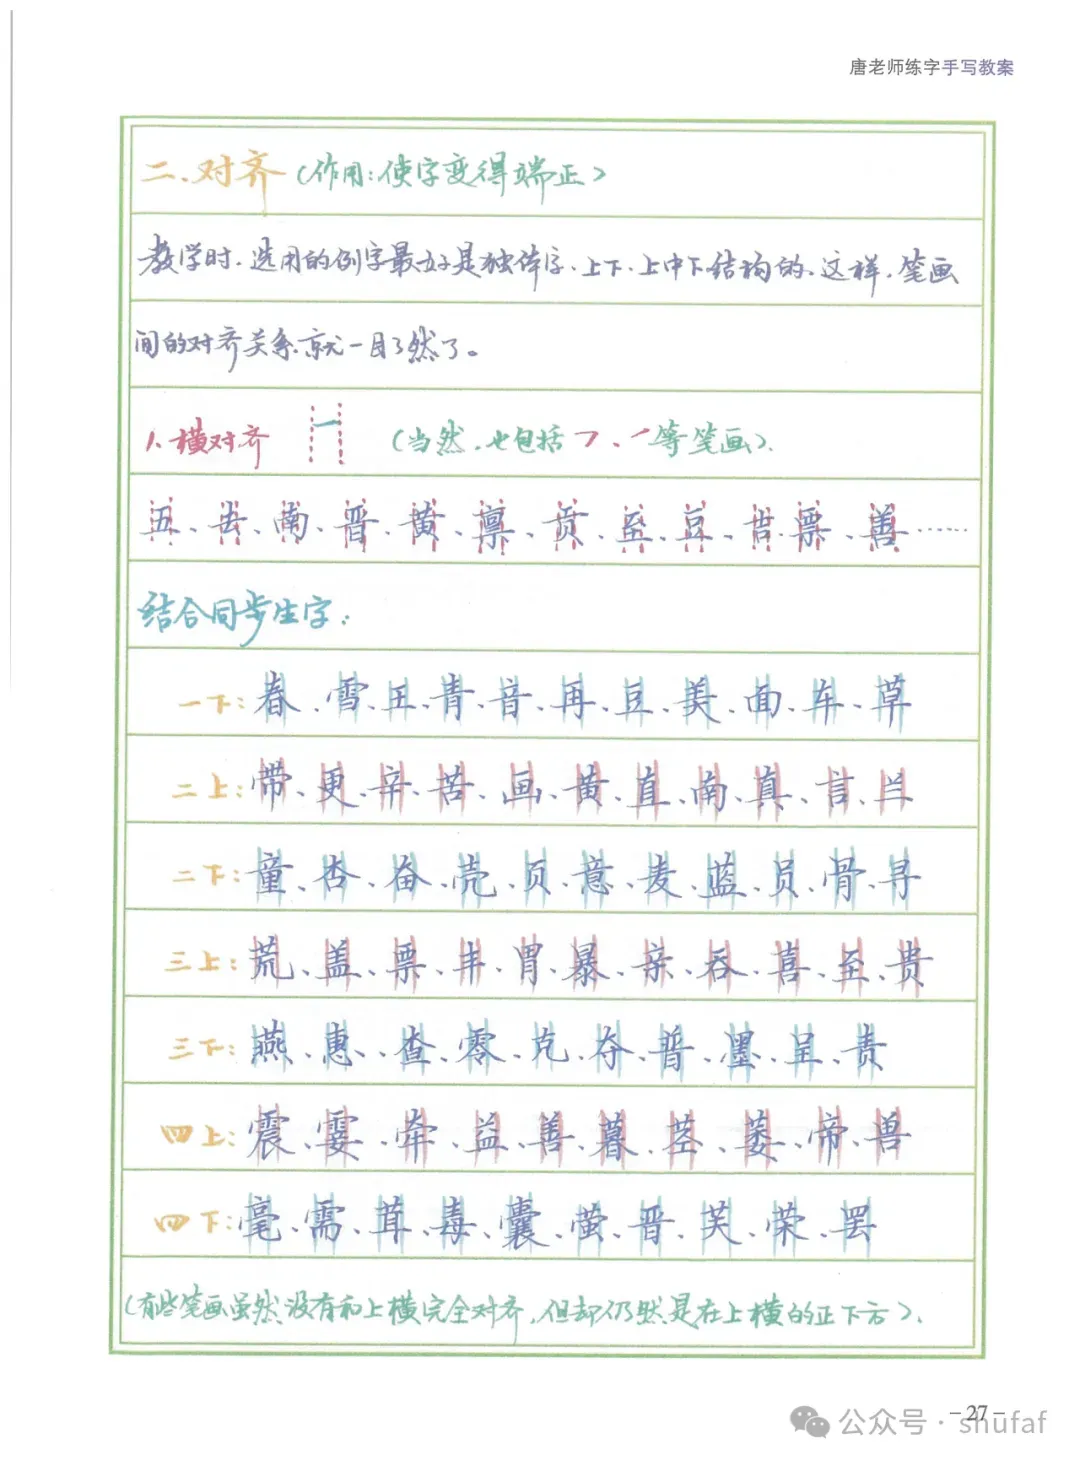 唐老师练字手写教案
二.对齐(作用:使字变得端正)
教学时.选用的例字最好是独体字、上下、上中下结构的.这样.笔画
间的对齐关系就一目了然了。
1.横对齐 (当然.也包括㇇、㇀等笔画).
五、去、南、晋、黄、禀、贡、至、豆、吉、票、善……
结合同步生字:
一下:春、雪、王、青、音、再、豆、美、面、车、草
二上:带、更、辛、苦、画、黄、直、南、真、言、兰
二下:童、杏、奋、壳、页、意、麦、蓝、员、骨、寻
三上:荒、盖、票、丰、胃、暴、亲、吞、喜、至、贵
三下:燕、惠、查、零、克、夺、普、墨、呈、责
四上:震、霎、牵、益、善、暮、茎、萎、帝、兽
四下:毫、需、茸、毒、囊、萤、晋、芙、荣、罢
(有些笔画虽然没有和上横完全对齐,但却仍然是在上横的正下方).
-27-
公众号·shufaf